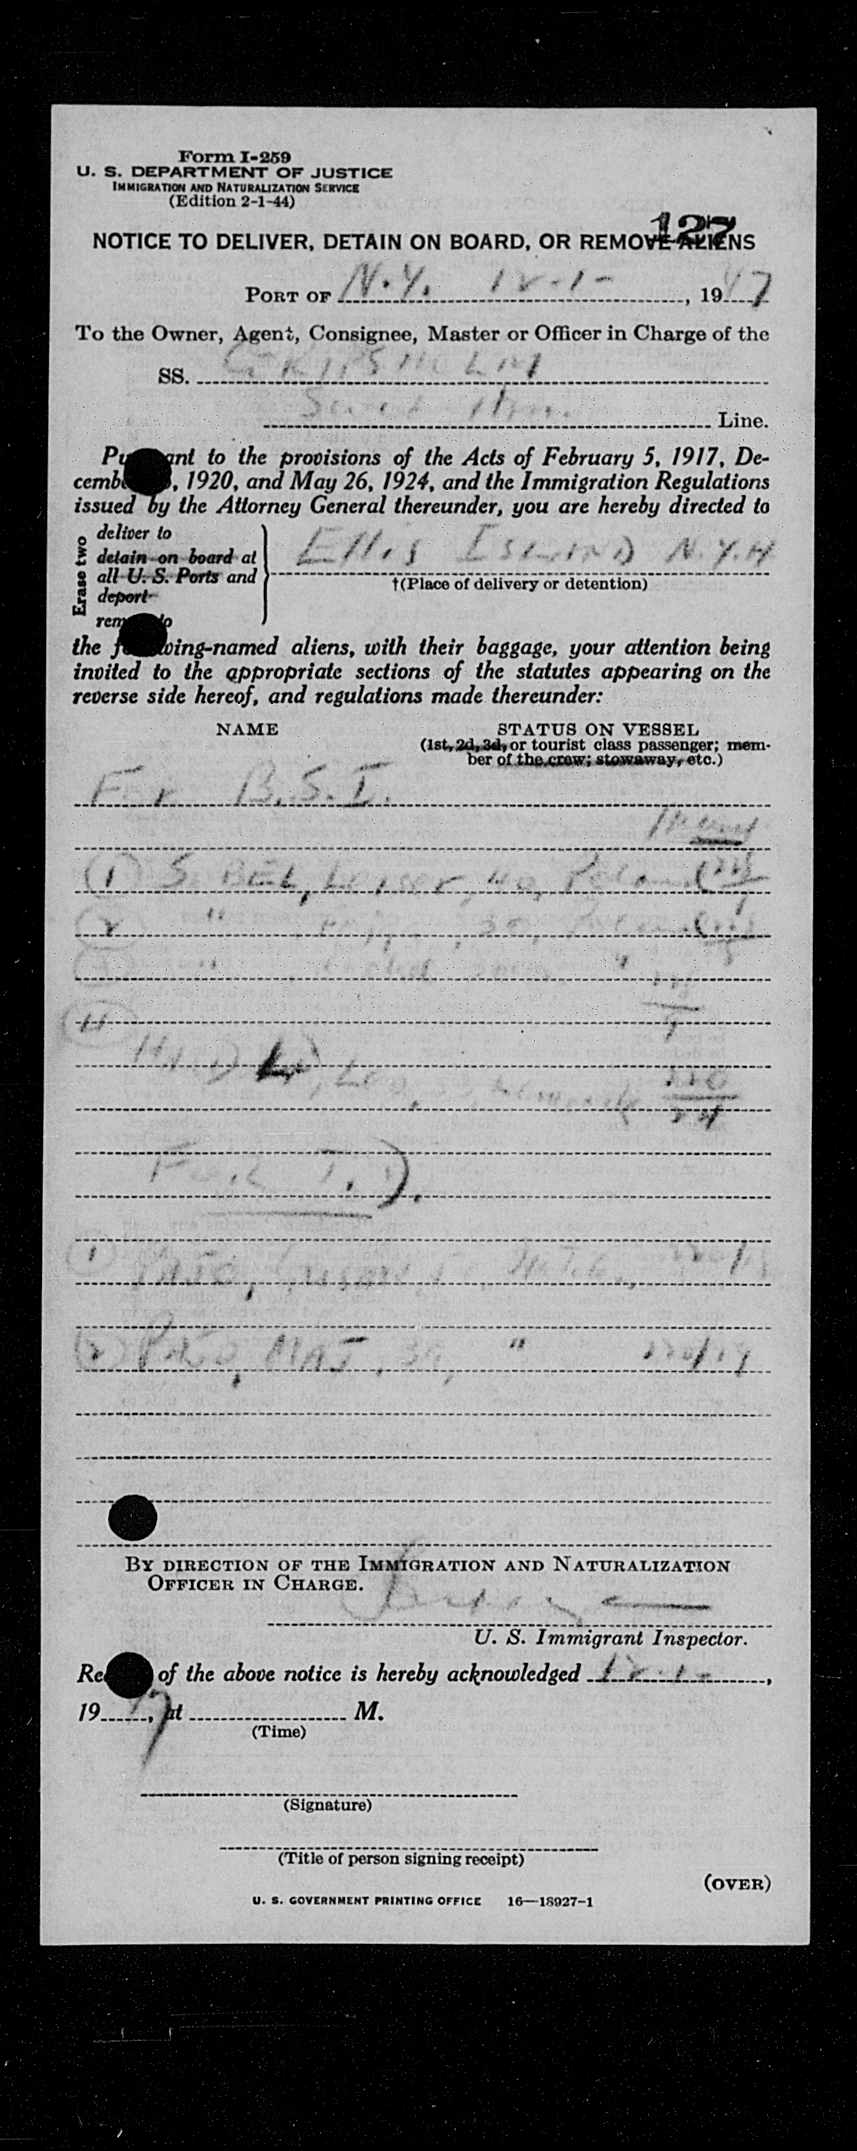 Form I-259
U. S. DEPARTMENT OF JUSTICE
IMMIGRATION AND NATURALIZATION SERVICE
(Edition 2-1-44)
127
NOTICE TO DELIVER, DETAIN ON BOARD, OR REMOVE ALIENS
PORT OF N.Y. 12-1-, 1947
To the Owner, Agent, Consignee, Master or Officer in Charge of the
SS. GRIPSHOLM
Line.
Pu ant to the provisions of the Acts of February 5, 1917, De-
cemb , 1920, and May 26, 1924, and the Immigration Regulations
issued by the Attorney General thereunder, you are hereby directed to
Erase two
deliver to
detain on board at
all U. S. Ports and
deport
rem to
Ellis ISLAND N.Y.H
†(Place of delivery or detention)
the f wing-named aliens, with their baggage, your attention being
invited to the appropriate sections of the statutes appearing on the
reverse side hereof, and regulations made thereunder:
NAME STATUS ON VESSEL
(1st, 2d, 3d, or tourist class passenger; mem-
ber of the crew; stowaway, etc.)
For B.S.I.
(1) , 40,
(2) "
"
For T.D.
(1)
(2) , MAJ, 39, "
BY DIRECTION OF THE IMMIGRATION AND NATURALIZATION
OFFICER IN CHARGE.
U. S. Immigrant Inspector.
Re of the above notice is hereby acknowledged 12-1-,
19 7, at M.
(Time)
(Signature)
(Title of person signing receipt)
(OVER)
U. S. GOVERNMENT PRINTING OFFICE 16—18927-1